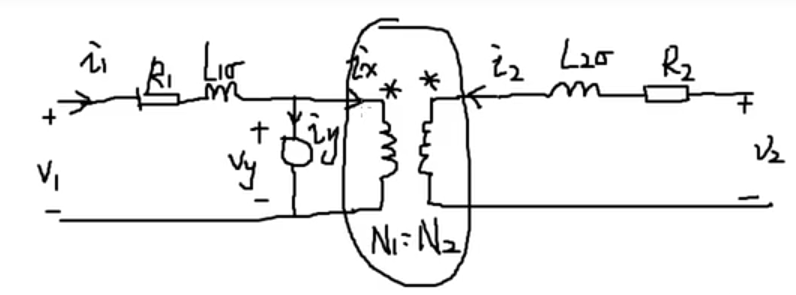 i₁ R₁ L₁σ iₓ * * i₂ L₂σ R₂
+ + iy +
V₁ Vy V₂
- - -
N₁:N₂